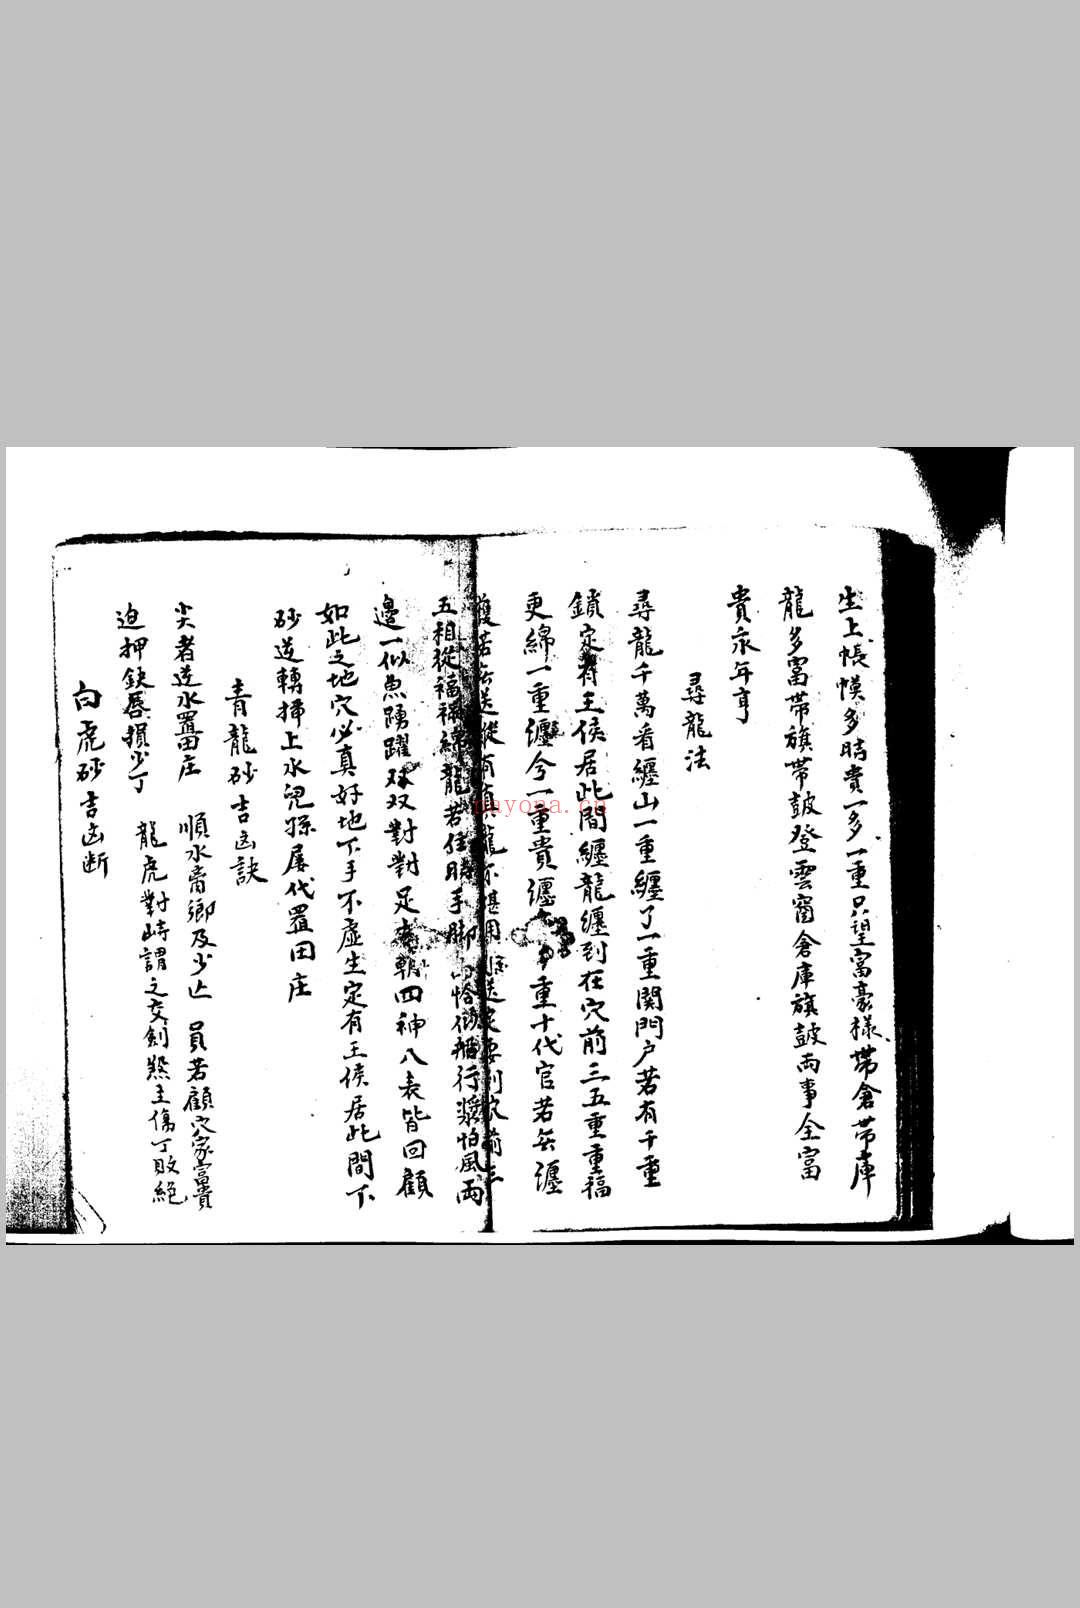 生上帳幙多時貴一多一重只望富豪樣帶倉帶庫
龍多富帶旗帶鼓登雲霄倉庫旗鼓両事全富
貴永年亨
尋龍法
尋龍千萬看纒山一重纒了一重関門户若有千重
鎖定有王侯居此間纒龍纒到在穴前三五重重福
更綿一重纒兮一重貴纒 重十代官若無纒
護若無送從有真龍不堪用 送定要到穴前
五相從福祿綿龍若住時手脚 恰似船行漿怕風雨
邊一似魚踴躍双双對對足 朝四神八表皆回顧
如此之地穴必真好地下手不虛生定有王侯居此間下
砂逆轉掃上水兒孫屢代置田庄
青龍砂吉凶訣
尖者逆水置田庄 順水离鄉及少亡 員若顧穴家富貴
迫押鈌唇損少丁 龍虎對峙謂之交劍煞主傷丁敗絕
白虎砂吉凶断
nayona.cn